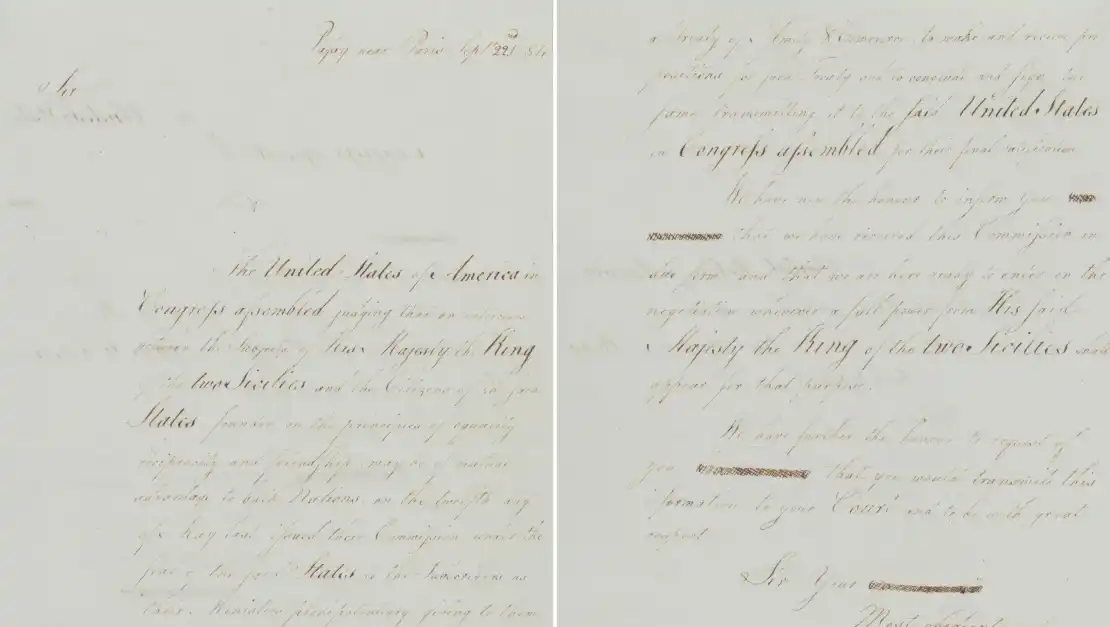 Passy near Paris Sept 22nd
Sir
The United States of America in
Congress assembled judging that an intercourse
between the Subjects of His Majesty the King
of the two Sicilies and the Citizens of the said
States founded on the principles of equality
reciprocity and friendship may be of mutual
advantage to both Nations, on the twelfth day
of May last issued their Commission under the
seal of the said States to the Subscribers as
their Ministers plenipotentiary giving to them
a Treaty of Amity & Commerce, to make and receive pro
positions for such Treaty and to conclude and sign the
same transmitting it to the said United States
in Congress assembled for their final ratification
We have now the honour to inform your
that we have received this Commission in
due form and that we are here ready to enter on the
negotiation whenever a full power from His said
Majesty the King of the two Sicilies shall
appear for that purpose.
We have further the honour to request of
you that you would transmit this
formation to your Court and to be with great
respect
Sir Your
Most obedient